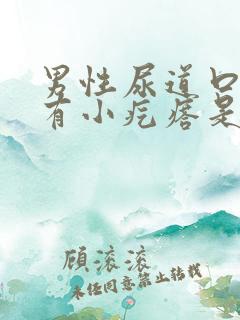 男性尿道口
有小疙瘩是
顾滚滚
未经同意禁止转载